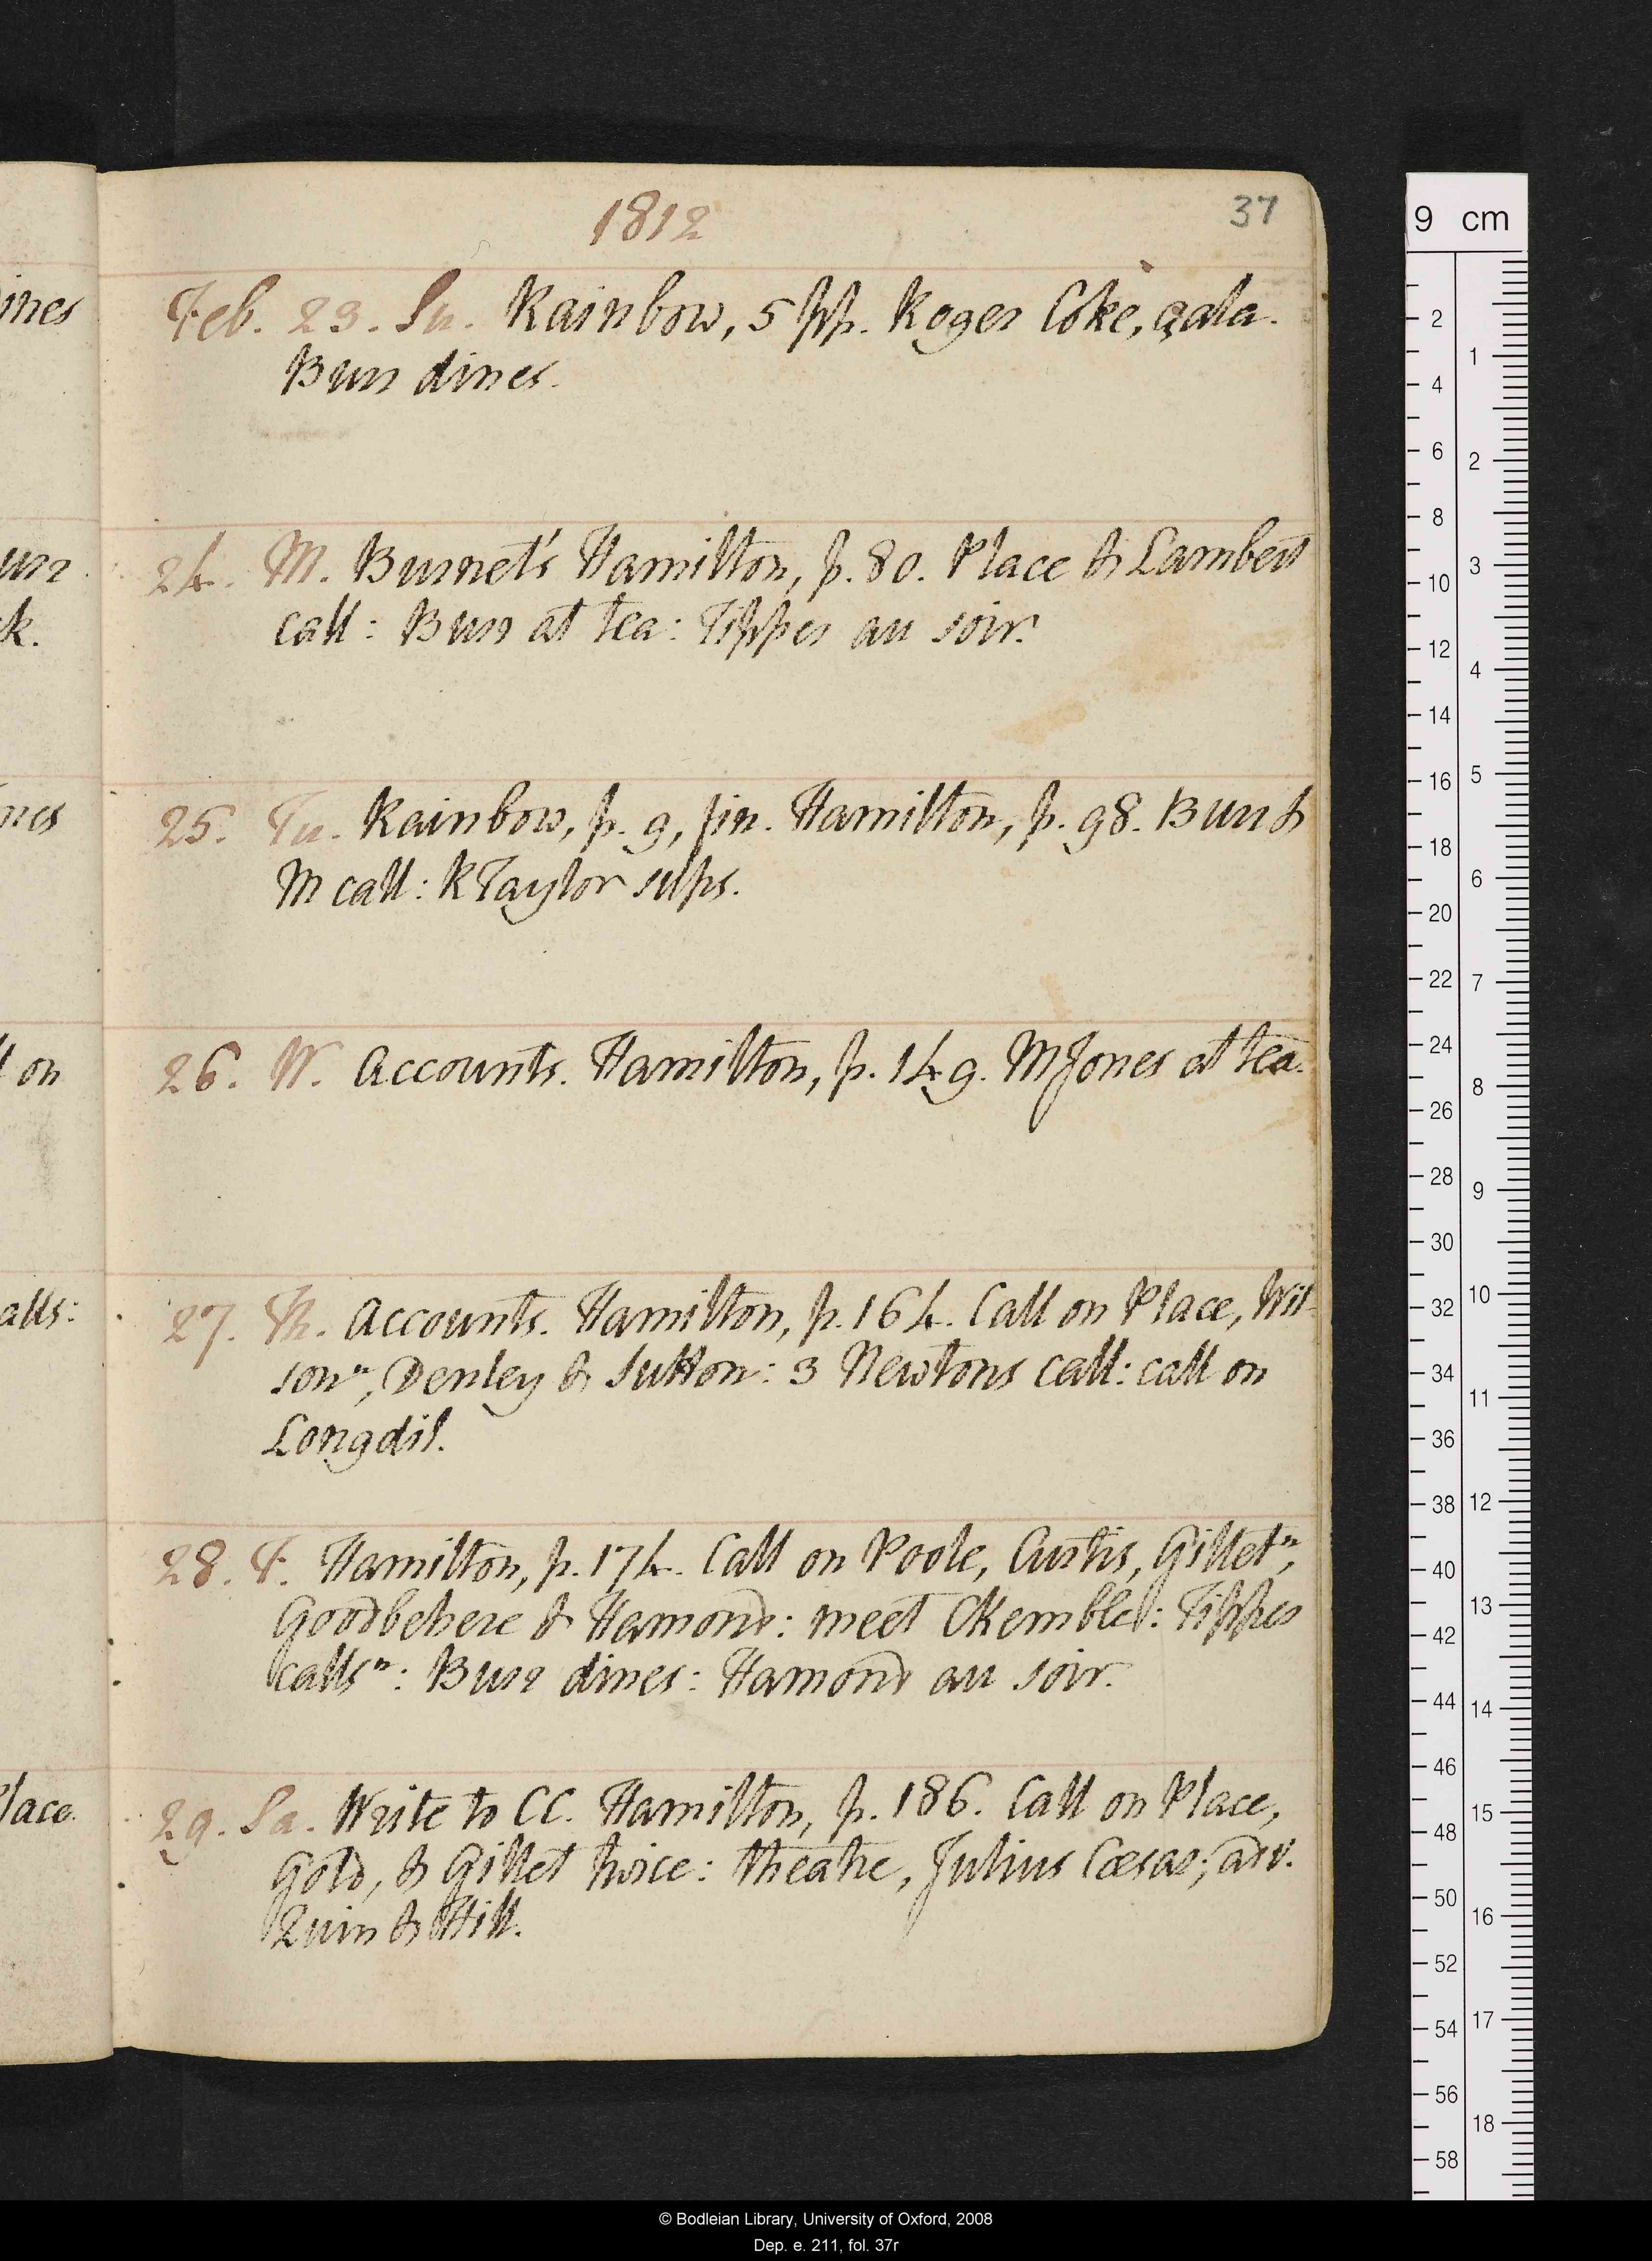 1812
37
Feb. 23. Su. Rainbow, 5 pp. Roger Coke, çala.
Burr dines.
24. M. Burnet's Hamilton, p. 80. Place & Lambert
call: Burr at tea: Tipper au soir.
25. Tu. Rainbow, p. 9, fin. Hamilton, p. 98. Burr &
M call: R Taylor sups.
26. W. Accounts. Hamilton, p. 149. M Jones at tea.
27. Th. Accounts. Hamilton, p. 164. Call on Place, Wil-
son ⁿ, Denley & Sutton: 3 Newtons call: call on
Longdil.
28. F. Hamilton, p. 174. Call on Poole, Curtis, Gillet ⁿ,
Goodbehere & Hamond: meet CKemble: Tipper
calls ⁿ: Burr dines: Hamond au soir.
29. Sa. Write to CC. Hamilton, p. 186. Call on Place,
Gold, & Gillet twice: theatre, Julius Cæsar; adv.
Quin & Hill.
ines
urr
k.
nes
l on
alls:
lace.
9 cm
2
4
6
8
10
12
14
16
18
20
22
24
26
28
30
32
34
36
38
40
42
44
46
48
50
52
54
56
58
1
2
3
4
5
6
7
8
9
10
11
12
13
14
15
16
17
18
© Bodleian Library, University of Oxford, 2008
Dep. e. 211, fol. 37r